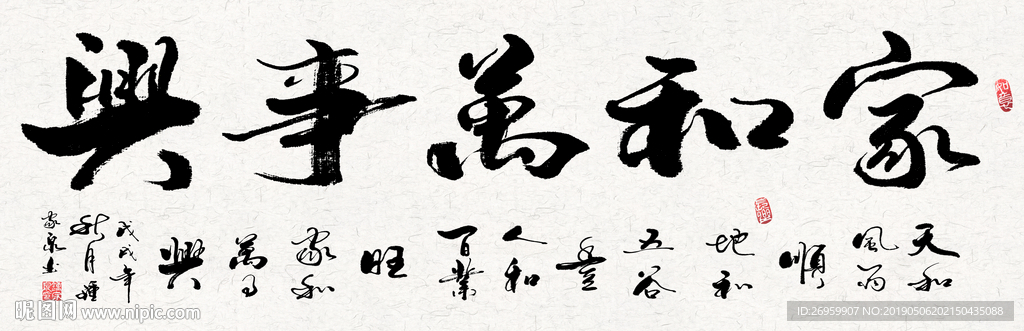 家和萬事興
天和
風雨
順
地和
五谷
豐
人和
百業
旺
家和
萬事
興
戊戌年
秋月
家泉书
如意
昵图网 www.nipic.com
ID:26959907 NO:20190506202150435088